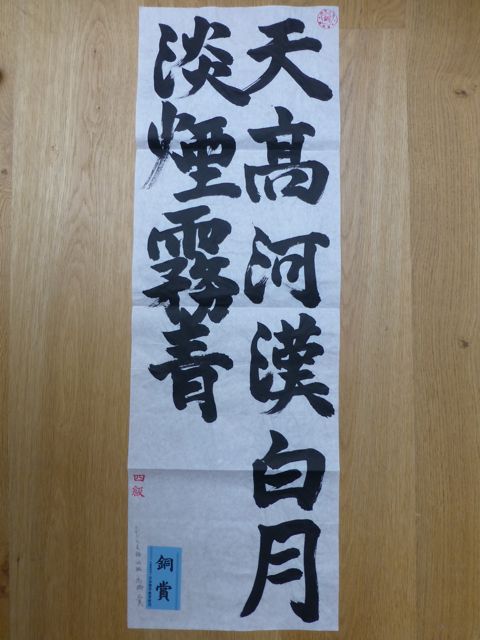 天高河漢白月
淡煙霧青
四級
銅賞